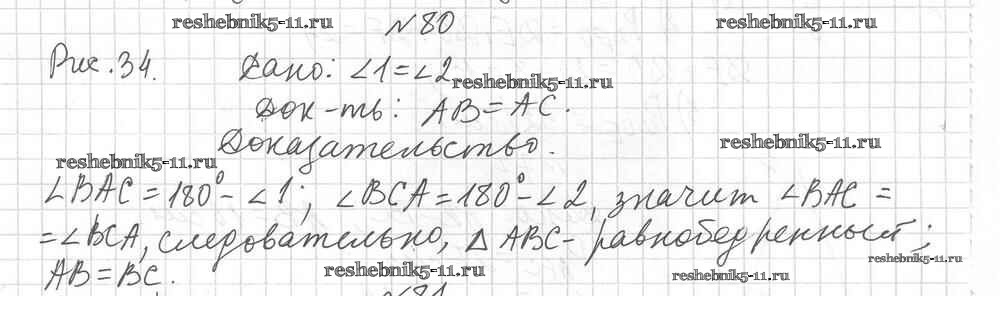 reshebnik5-11.ru №80 reshebnik5-11.ru
Рис. 34. Дано: ∠1=∠2 reshebnik5-11.ru
Док-ть: AB=AC.
Доказательство. reshebnik5-11.ru
reshebnik5-11.ru
∠BAC=180°-∠1; ∠BCA=180°-∠2, значит ∠BAC=
=∠BCA, следовательно, △ABC- равнобедренный;
reshebnik5-11.ru
AB=BC. reshebnik5-11.ru reshebnik5-11.ru
№81